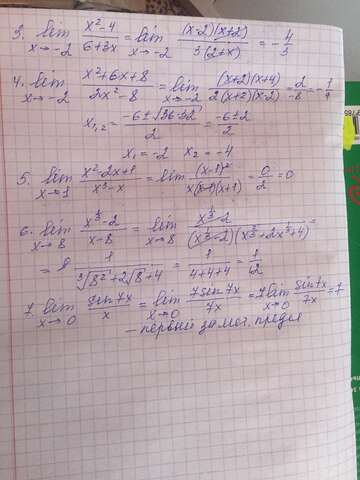 3. lim x→-2 (x²-4)/(6+3x) = lim x→-2 ((x-2)(x+2))/(3(2+x)) = -4/3
4. lim x→-2 (x²+6x+8)/(2x²-8) = lim x→-2 ((x+2)(x+4))/(2(x+2)(x-2)) = 2/-8 = -1/4
x₁,₂ = (-6±√(36-32))/2 = (-6±2)/2
x₁ = -2 x₂ = -4
5. lim x→1 (x²-2x+1)/(x³-x) = lim (x-1)²/(x(x-1)(x+1)) = 0/2 = 0
6. lim x→8 (x^⅓-2)/(x-8) = lim x→8 (x^⅓-2)/((x^⅓-2)(x^⅔+2x^⅓+4)) =
= 1/(∛8²+2∛8+4) = 1/(4+4+4) = 1/12
7. lim x→0 sin7x/x = lim x→0 7sin7x/7x = 7 lim x→0 sin7x/7x = 7
- первый замеч. предел